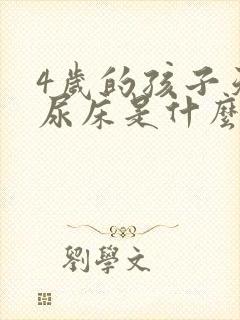 4歲的孩子
尿床是什麼
劉學文